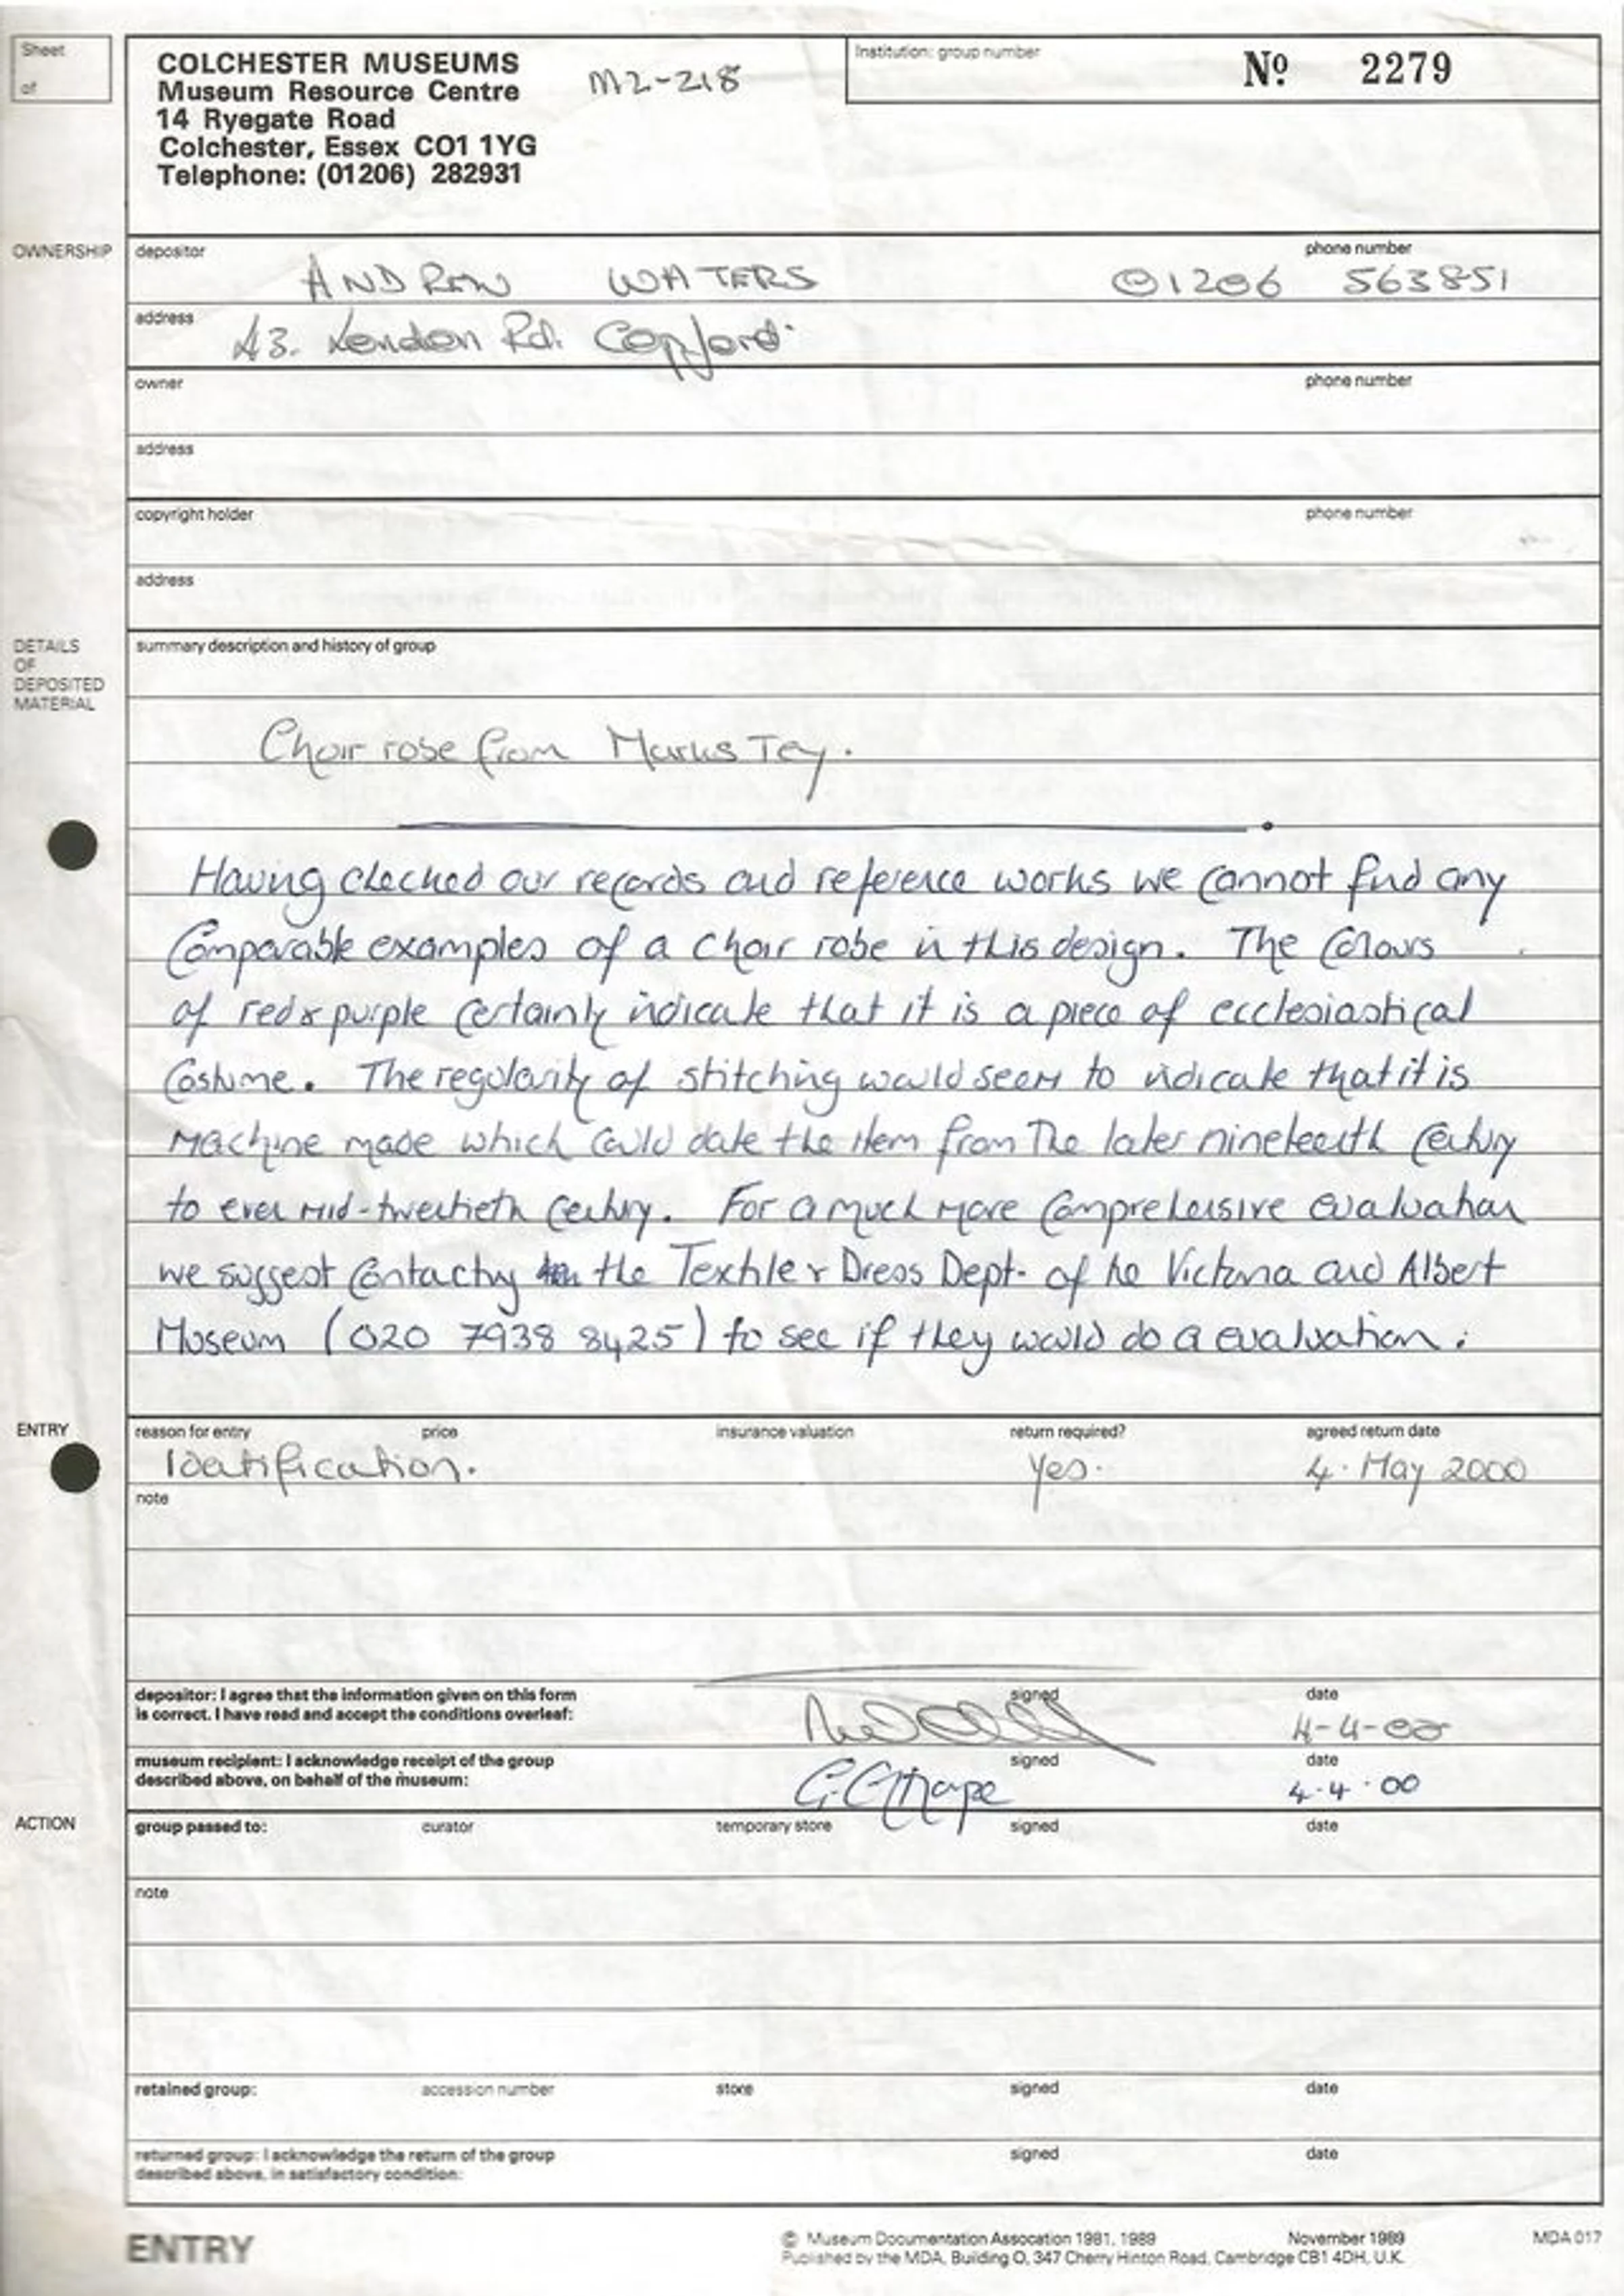 Sheet
of
COLCHESTER MUSEUMS
Museum Resource Centre
14 Ryegate Road
Colchester, Essex CO1 1YG
Telephone: (01206) 282931
M2-218
Institution: group number
Nº 2279
OWNERSHIP
depositor
phone number
ANDREW WATERS 01206 563851
address
43. London Rd. Copford.
owner
phone number
address
copyright holder
phone number
address
DETAILS
OF
DEPOSITED
MATERIAL
summary description and history of group
Choir robe from Marks Tey.
Having checked our records and reference works we cannot find any
comparable examples of a choir robe in this design. The colours
of red & purple certainly indicate that it is a piece of ecclesiastical
costume. The regularity of stitching would seem to indicate that it is
machine made which could date the item from the later nineteenth century
to even mid-twentieth century. For a much more comprehensive evaluation
we suggest contacting the Textile & Dress Dept. of the Victoria and Albert
Museum (020 7938 8425) to see if they would do a evaluation.
ENTRY
reason for entry price insurance valuation return required? agreed return date
Identification. Yes. 4. May 2000
note
depositor: I agree that the information given on this form
is correct. I have read and accept the conditions overleaf:
signed
date
4-4-00
museum recipient: I acknowledge receipt of the group
described above, on behalf of the museum:
signed
date
4.4.00
ACTION
group passed to: curator temporary store signed date
note
retained group: accession number store signed date
returned group: I acknowledge the return of the group
described above, in satisfactory condition:
signed
date
ENTRY
© Museum Documentation Assocation 1981, 1989 November 1989 MDA 017
Published by the MDA, Building O, 347 Cherry Hinton Road, Cambridge CB1 4DH, U.K.